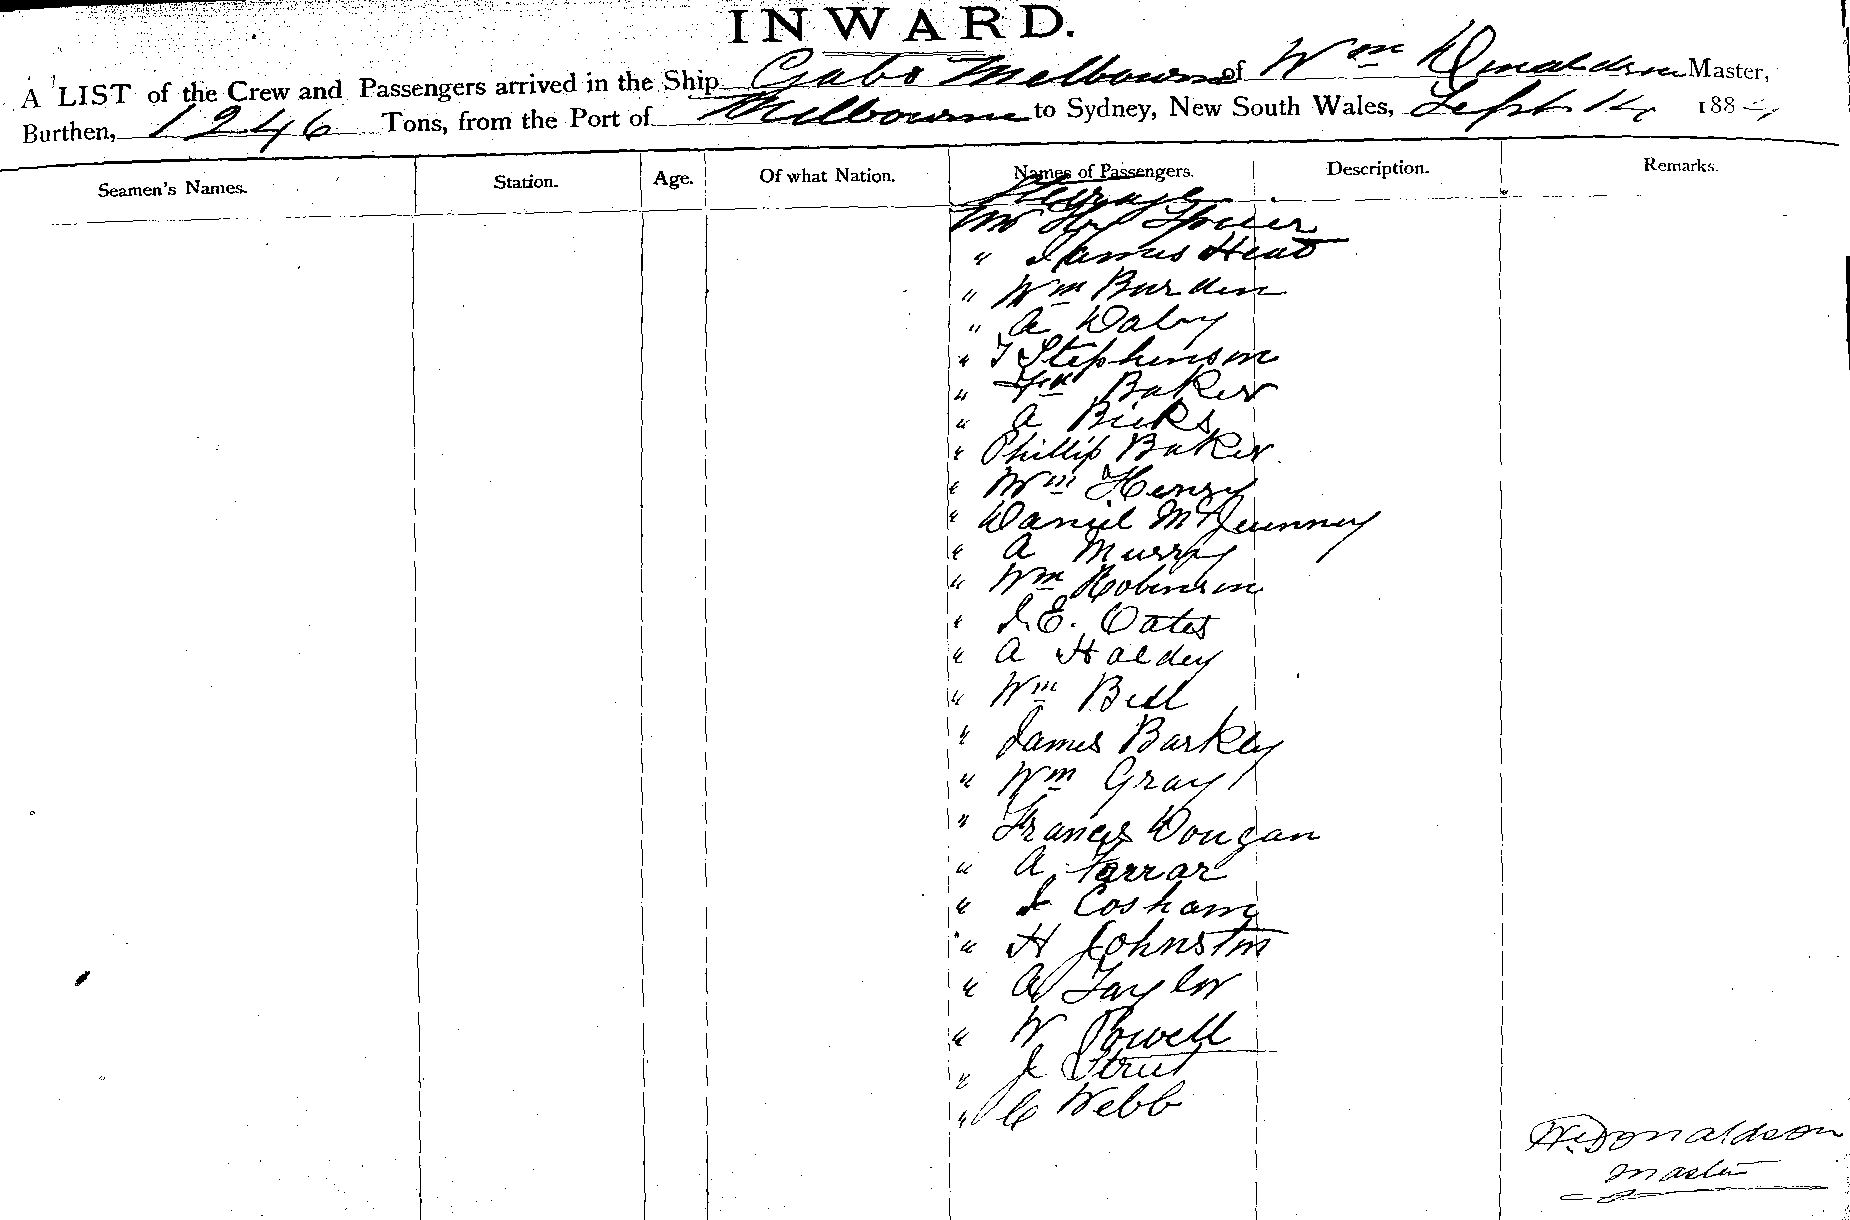 INWARD.
A LIST of the Crew and Passengers arrived in the Ship Gabo Melbourne of Wm Donaldson Master,
Burthen, 1246 Tons, from the Port of Melbourne to Sydney, New South Wales, Sept 14 188
Seamen's Names. Station. Age. Of what Nation. Names of Passengers. Description. Remarks.
Steerage
Mr Hy Spicer
" James Head
" Wm Burden
" A Daby
" T Stephenson
" Baker
" A Bicks
" Phillip Baker
" Wm Henry
" Daniel
" A Murray
" Wm Robinson
" J. E. Oates
" A Haldey
" Wm Bell
" James Barkley
" Wm Gray
" Francis Dougan
" A Farrar
" J Cosham
" H Johnston
" A Taylor
" W Powell
" J Strut
" C Webb
Wm Donaldson
Master